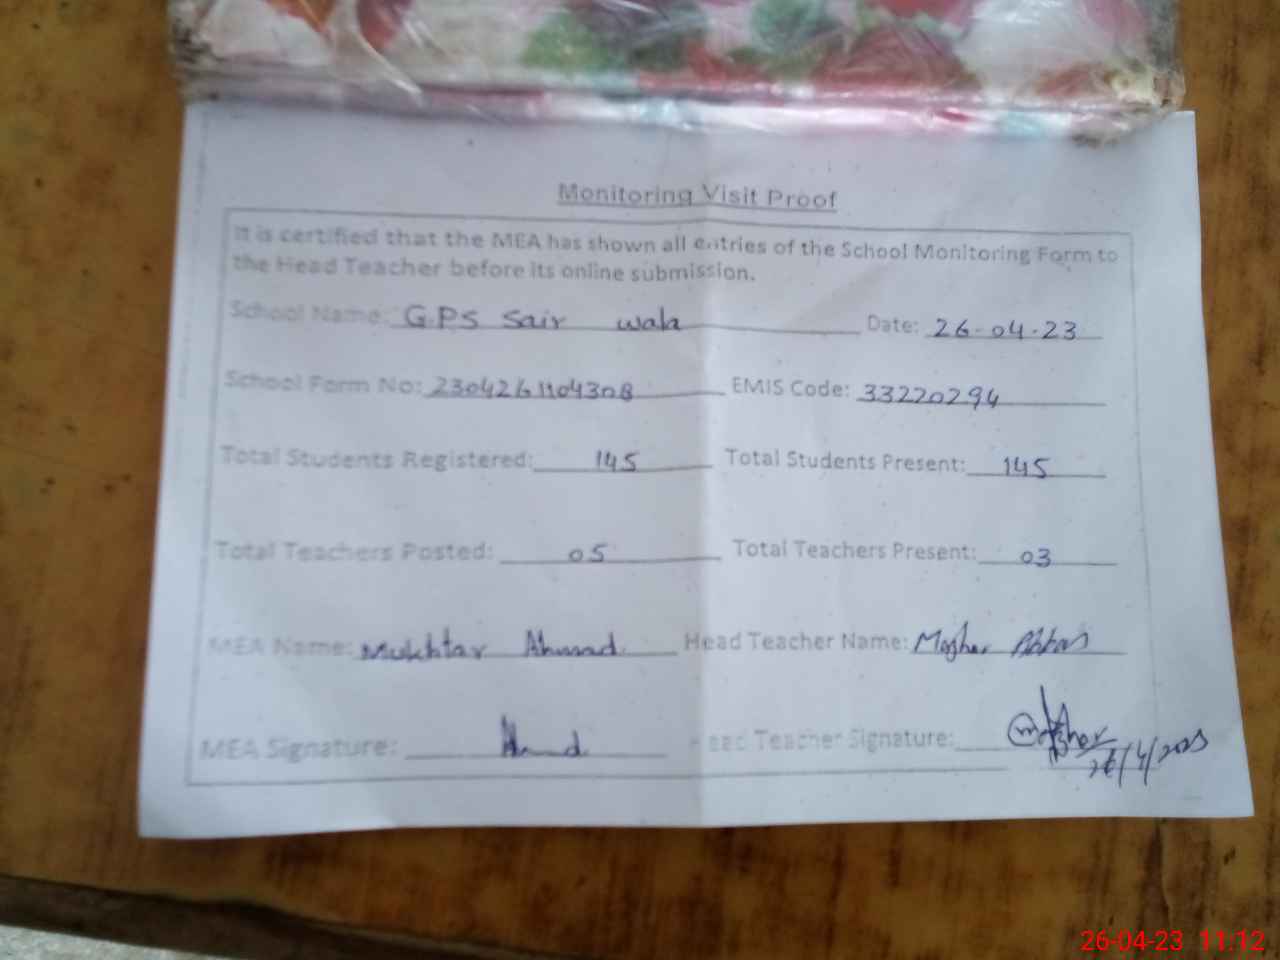 Monitoring Visit Proof
It is certified that the MEA has shown all entries of the School Monitoring Form to
the Head Teacher before its online submission.
School Name: G.P.S Sair wala Date: 26-04-23
School Form No: EMIS Code: 33220294
Total Students Registered: 145 Total Students Present: 145
Total Teachers Posted: 05 Total Teachers Present: 03
MEA Name: Mukhtar Ahmad Head Teacher Name: Abbas
MEA Signature: Head Teacher Signature:
26/4/2023
26-04-23 11:12